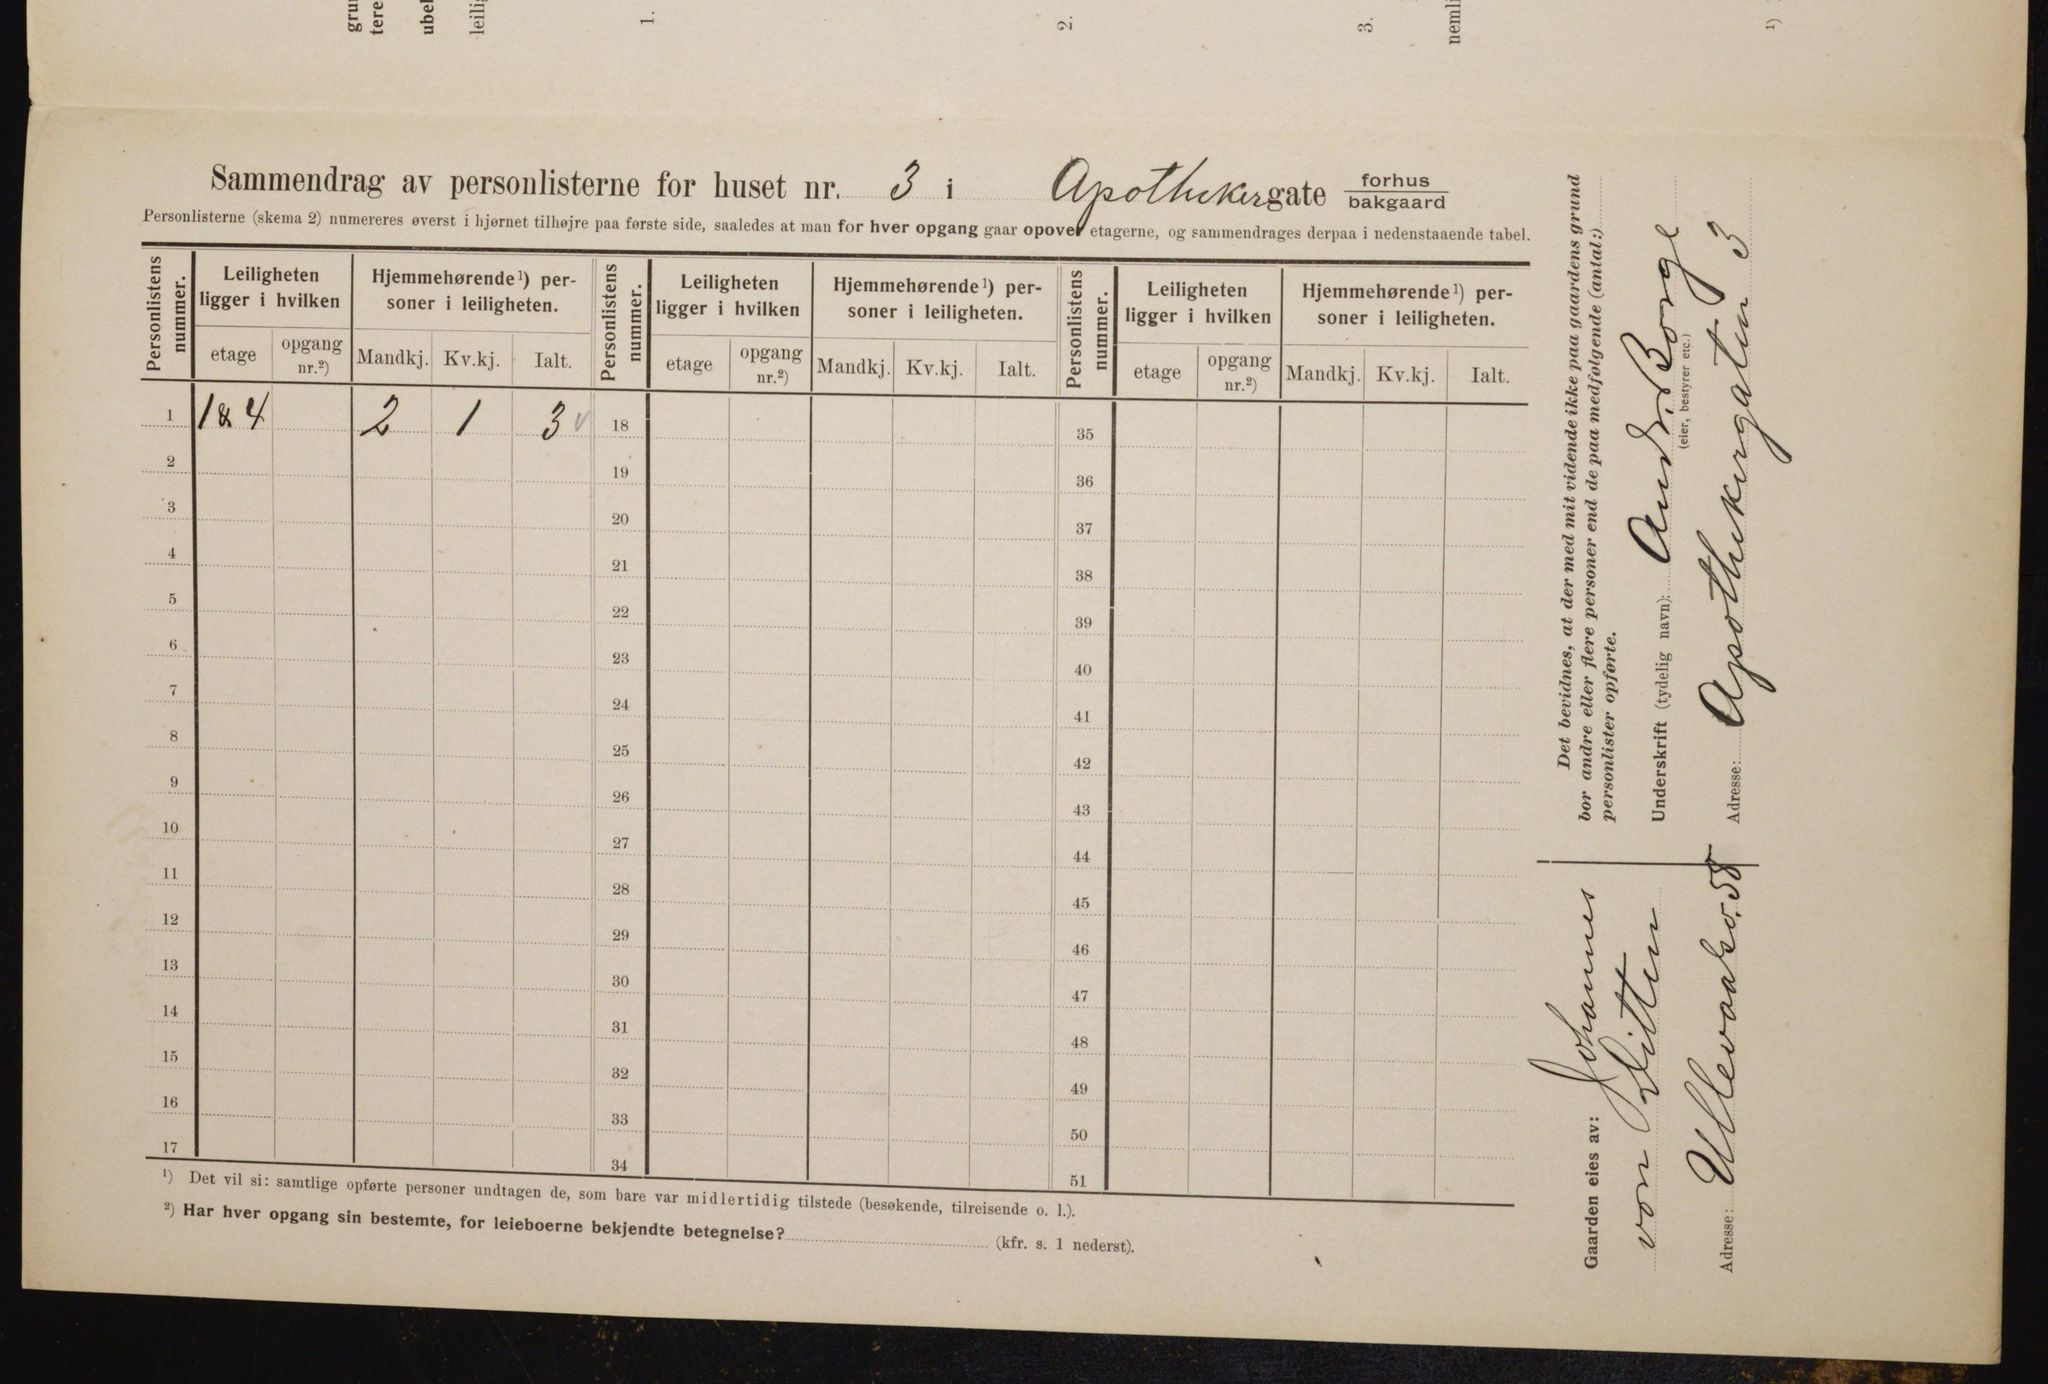 grun
tere
ubel
leilig
1.
2.
3.
nemli
1)
Sammendrag av personlisterne for huset nr. 3 i Apothekergate forhus bakgaard
Personlisterne (skema 2) numereres øverst i hjørnet tilhøjre paa første side, saaledes at man for hver opgang gaar opover etagerne, og sammendrages derpaa i nedenstaaende tabel.
Personlistens nummer. Leiligheten ligger i hvilken Hjemmehørende¹) personer i leiligheten. Personlistens nummer. Leiligheten ligger i hvilken Hjemmehørende¹) personer i leiligheten. Personlistens nummer. Leiligheten ligger i hvilken Hjemmehørende¹) personer i leiligheten.
etage opgang nr.²) Mandkj. Kv.kj. Ialt. etage opgang nr.²) Mandkj. Kv.kj. Ialt. etage opgang nr.²) Mandkj. Kv.kj. Ialt.
1 1 & 4 2 1 3 v 18 35
2 19 36
3 20 37
4 21 38
5 22 39
6 23 40
7 24 41
8 25 42
9 26 43
10 27 44
11 28 45
12 29 46
13 30 47
14 31 48
15 32 49
16 33 50
17 34 51
¹) Det vil si: samtlige opførte personer undtagen de, som bare var midlertidig tilstede (besøkende, tilreisende o. l.).
²) Har hver opgang sin bestemte, for leieboerne bekjendte betegnelse? (kfr. s. 1 nederst).
Det bevidnes, at der med mit vidende ikke paa gaardens grund
bor andre eller flere personer end de paa medfølgende (antal:)
personlister opførte.
Underskrift (tydelig navn): Andr. Borge
(eier, bestyrer etc.)
Adresse: Apothekergaten 3
Gaarden eies av: Johannes
von Ditten
Adresse: Ullevaalsv. 58